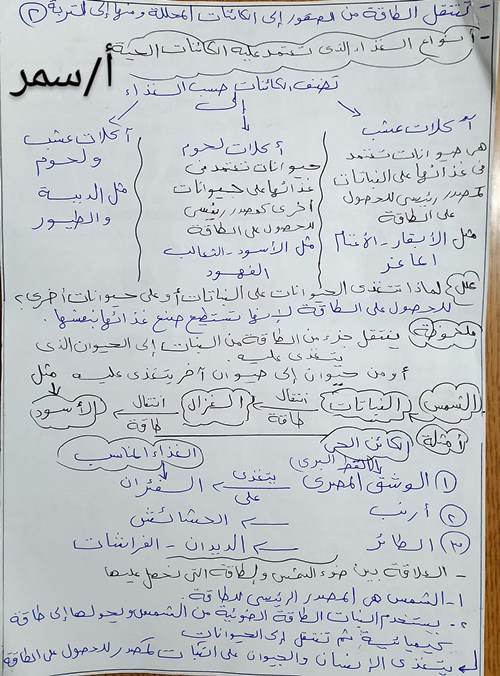 - تنتقل الطاقة من الصقور إلى الكائنات المحللة ومنها إلى التربة (2)
- أنواع الغذاء الذى تعتمد عليه الكائنات الحية
أ/سمر
تصنف الكائنات حسب الغذاء
إلى
آكلات عشب
هى حيوانات تعتمد
فى غذائها على النباتات
كمصدر رئيسى للحصول
على الطاقة
مثل الأبقار - الأغنام
الماعز
آكلات لحوم
حيوانات تعتمد فى
غذائها على حيوانات
أخرى كمصدر رئيسى
للحصول على الطاقة
مثل الأسود - الثعالب
الفهود
آكلات عشب
ولحوم
مثل الدببة
والطيور
علل لماذا تتغذى الحيوانات على النباتات أو على حيوانات أخرى؟
للحصول على الطاقة لأنها لا تستطيع صنع غذائها بنفسها.
ملحوظة ينتقل جزء من الطاقة من النبات إلى الحيوان الذى
يتغذى عليه
أو من حيوان إلى حيوان آخر يتغذى عليه مثل
الشمس ← النباتات انتقال طاقة ← الغزال انتقال طاقة ← الأسود
أمثلة الكائن الحى الغذاء المناسب
(القط البرى)
(1) الوشق المصرى يتغذى على ← الفئران
(2) أرنب ← الحشائش
(3) الطائر ← الديدان - الفراشات
- العلاقة بين ضوء الشمس والطاقة التى نحصل عليها
1- الشمس هى المصدر الرئيسى للطاقة
2- يستخدم النبات الطاقة الضوئية من الشمس ويحولها إلى طاقة
كيميائية ثم تنتقل إلى الحيوانات
يتغذى الإنسان والحيوان على النبات كمصدر للحصول على الطاقة